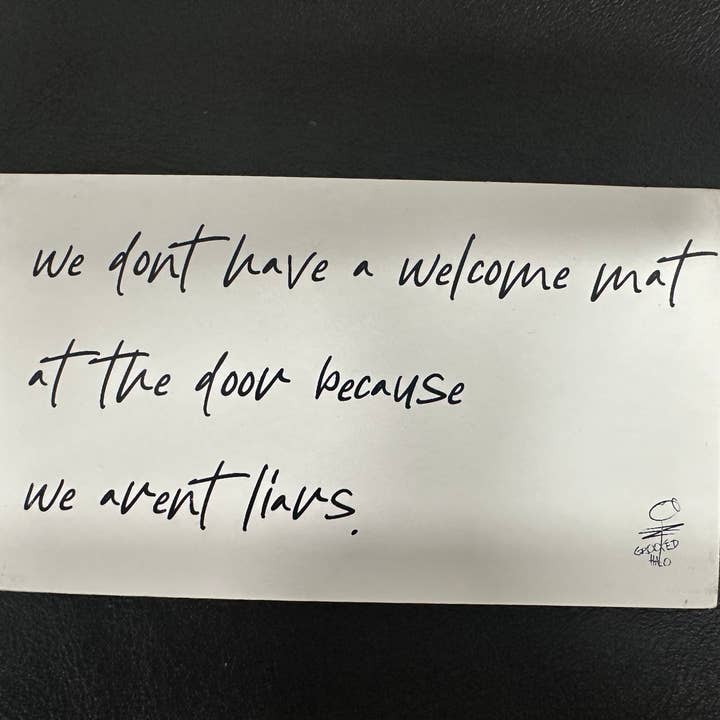 we dont have a welcome mat
at the door because
we arent liars.
CROOKED
HALO